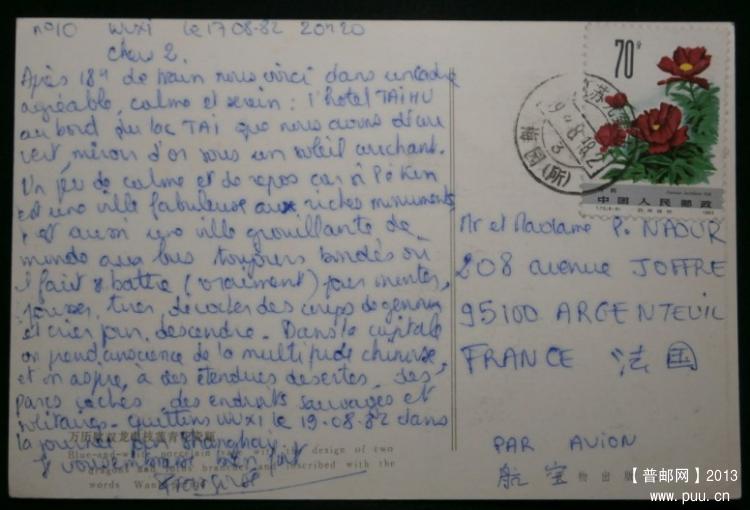 n°10 WUXI le 17 08-82 20H20
chers 2.
Après 18H de train nous voici dans un cadre
agréable, calme et serein : l'hôtel TAIHU
au bord du lac TAI que nous avons découvert
vert, miroir d'or sous un soleil couchant.
Un peu de calme et de repos car si Pékin
est une ville fabuleuse aux riches monuments
c'est aussi une ville grouillante de
monde aux bus toujours bondés où
il fait se battre (vraiment) pour monter,
pousser, tirer des coups de genoux
et crier pour descendre. Dans la capitale
on prend conscience de la multitude chinoise
et on aspire à des étendues désertes, des
parcs cachés des endroits sauvages et
solitaires. quittons WUXI le 19-08-82 dans
la journée pour Shanghay.
万历 双龙 青花
Blue-and-white porcelain with design of two
dragons and lotus branches and inscribed with the
words Wan
70分
中国人民邮政
1982
Mr et Madame P. NAOUR
208 avenue JOFFRE
95100 ARGENTEUIL
FRANCE 法国
PAR AVION
航空
物出版
【普邮网】2013
www.puu.cn